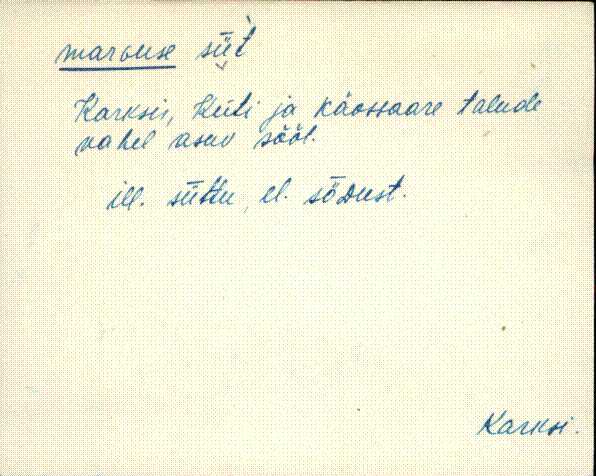 marouse süt
Karksis, Küti ja Käossaare talude
vahel asuv sööt.
ill. süttu, el. södust.
Karksi.